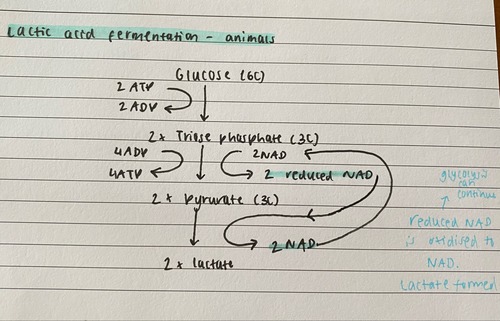 Lactic acid fermentation - animals
Glucose (6C)
2 ATP
2 ADP
2x Triose phosphate (3C)
4ADP
2NAD
4ATP
2 reduced NAD
2 x pyruvate (3C)
2 NAD
2 x lactate
glycolysis
can
continue
↑
reduced NAD
is oxidised to
NAD.
Lactate formed